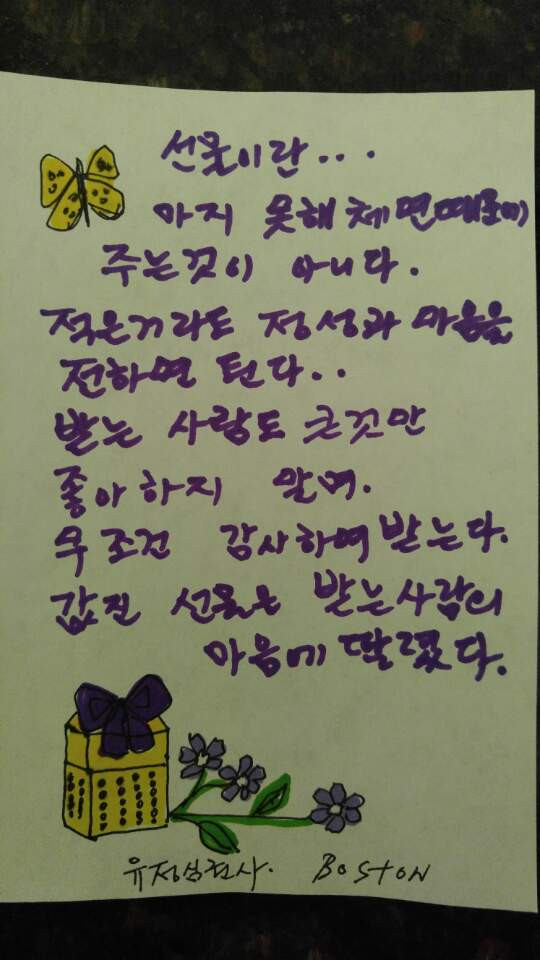 선물이란...
마지 못해 체면때문에
주는것이 아니다.
적은거라도 정성과 마음을
전하면 된다..
받는 사람도 큰것만
좋아하지 말며.
무조건 감사하며 받는다.
값진 선물은 받는사람의
마음에 딸렸다.
BOSTON